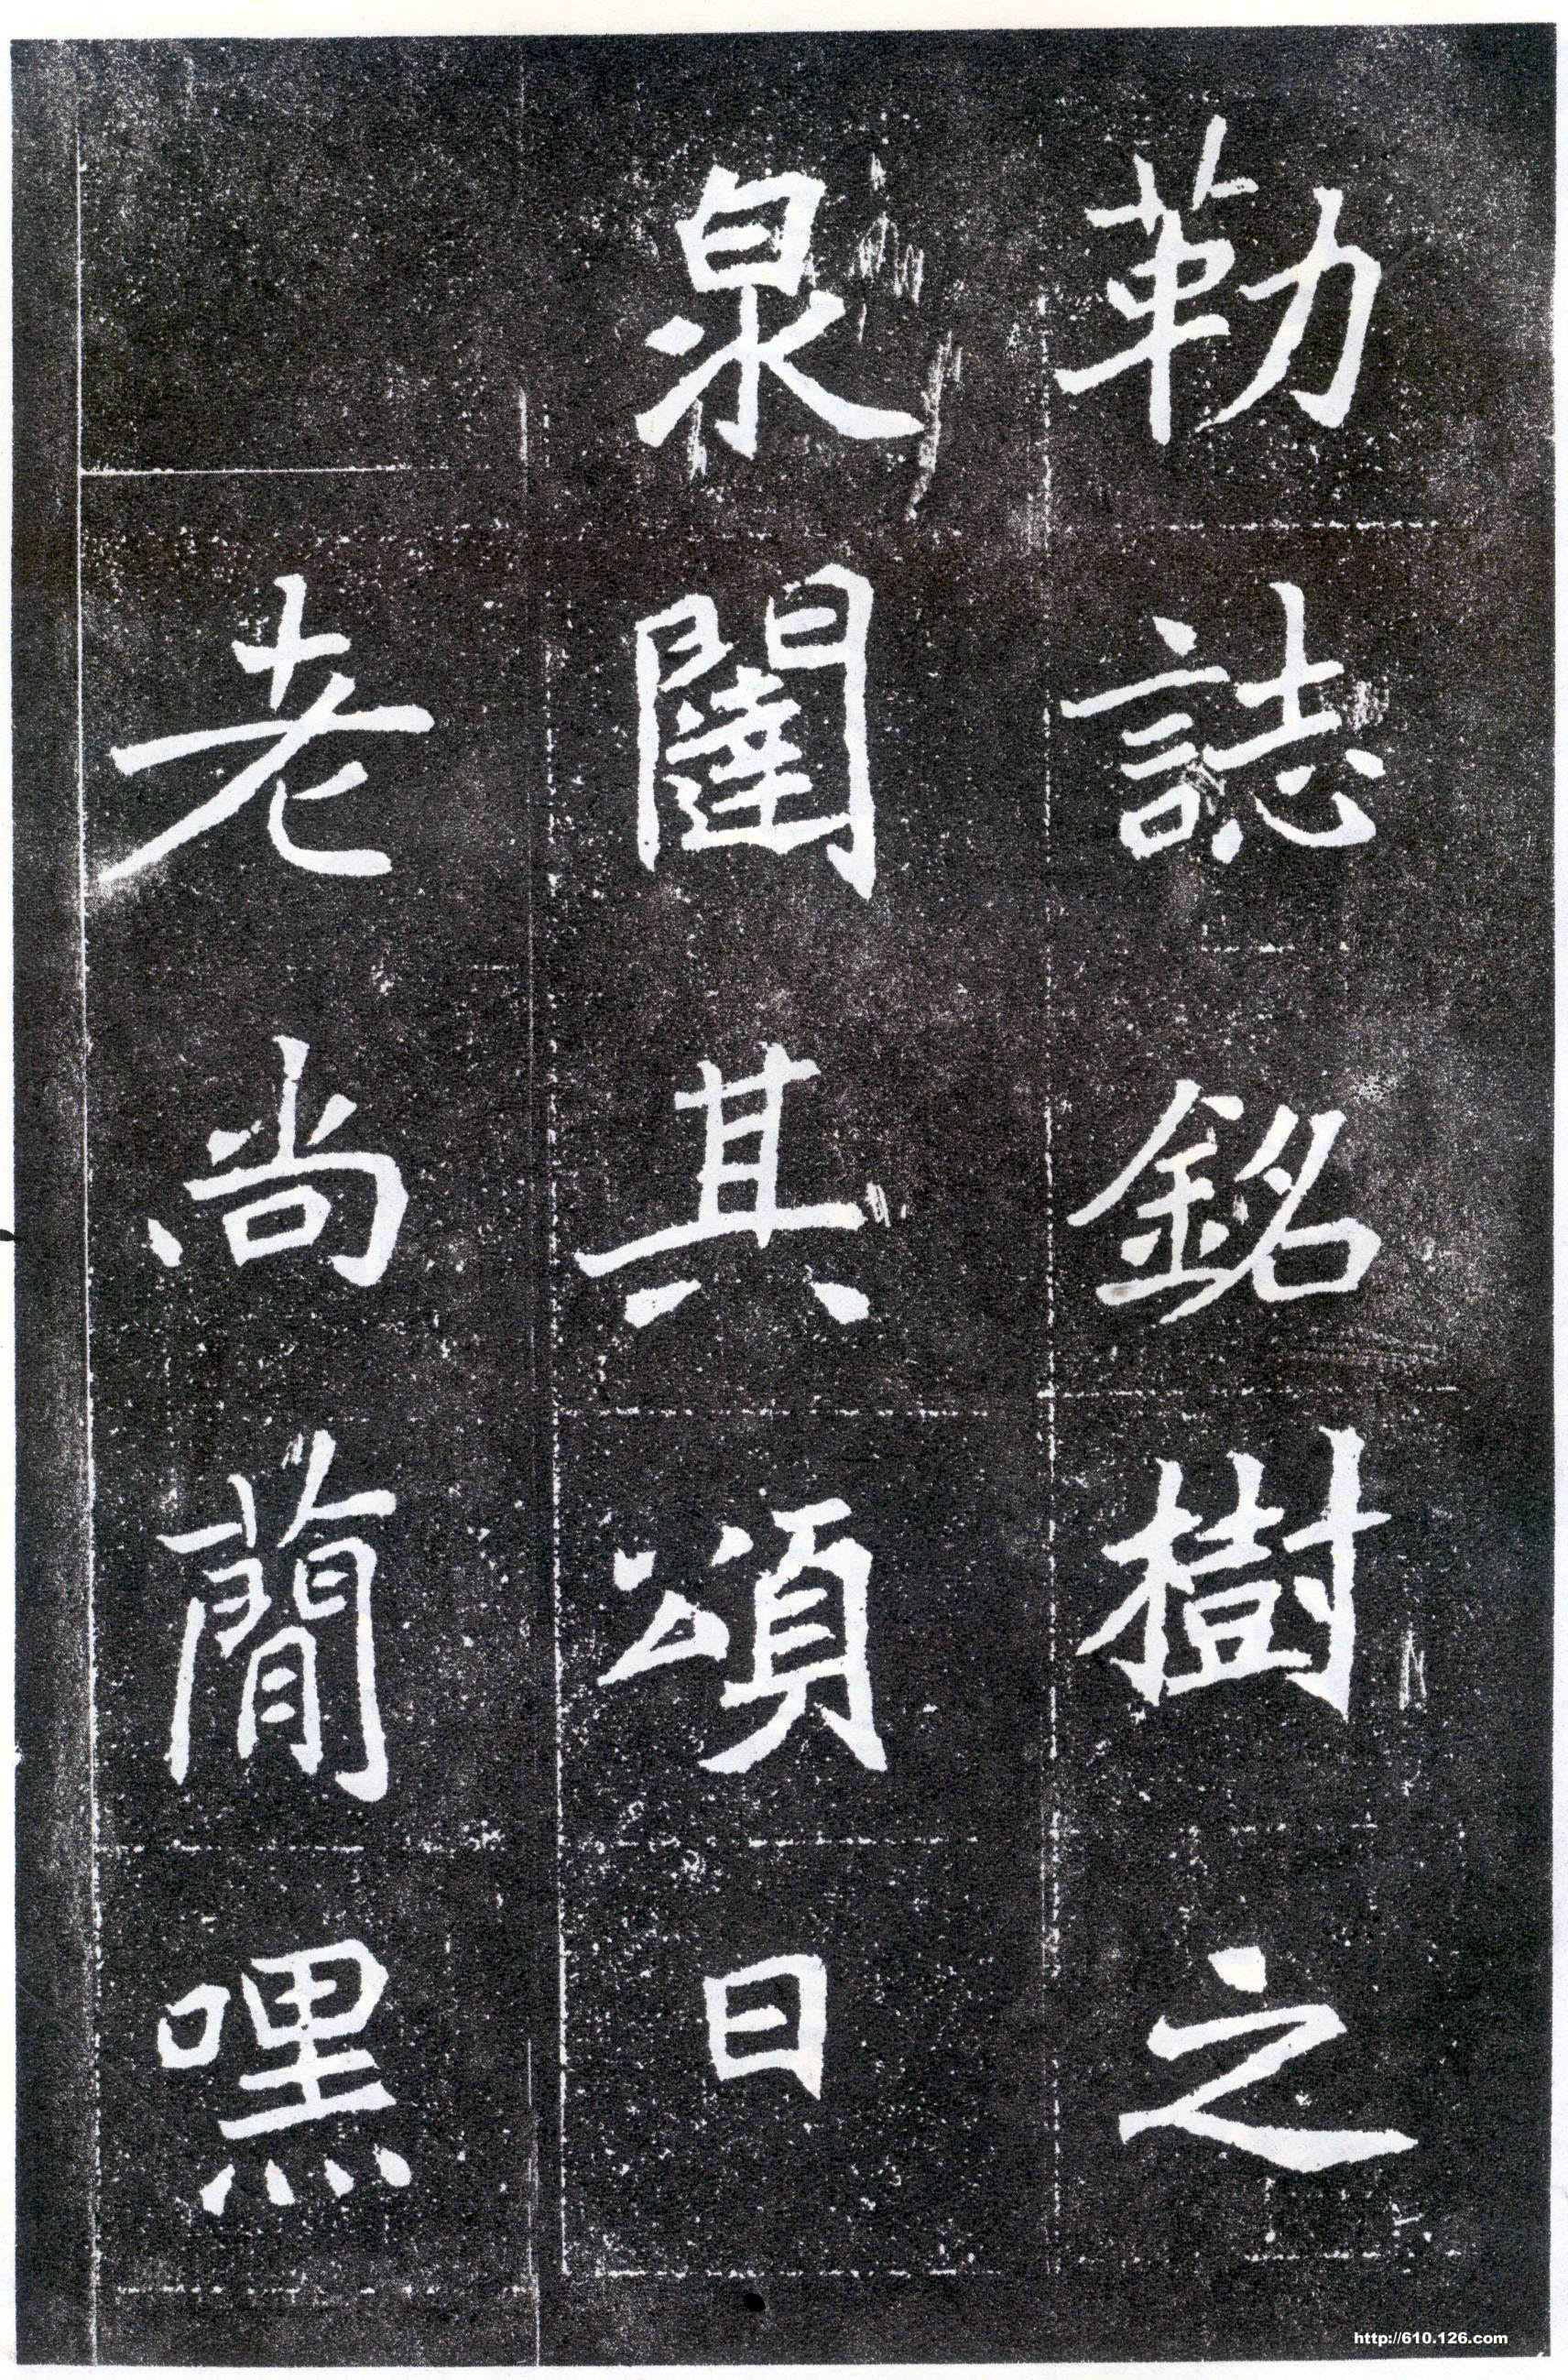 勒誌銘樹之
泉闥其頌曰
老尚蕳嘿
http://610.126.com